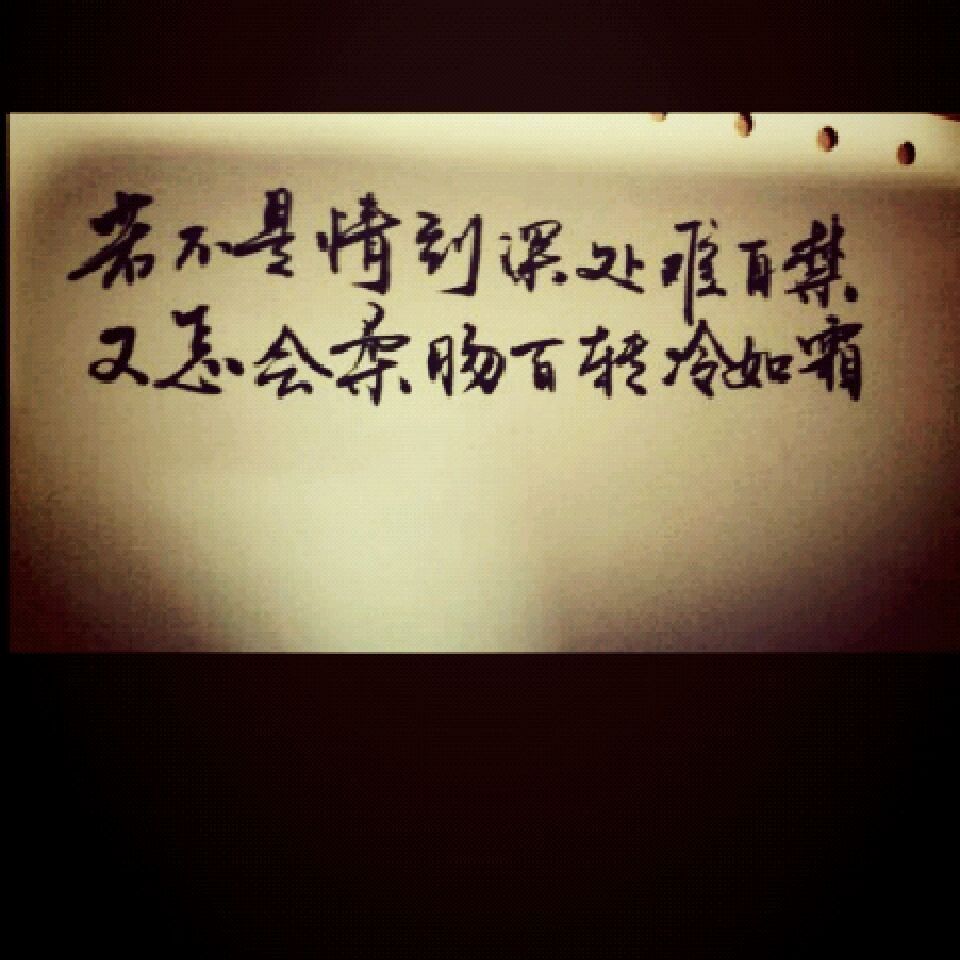 若不是情刻深处难自禁
又怎会柔肠百转冷如霜